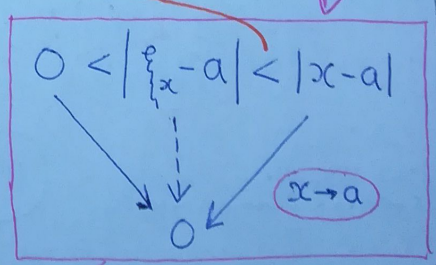 0 < |ξₓ - a| < |x - a|
x → a
0